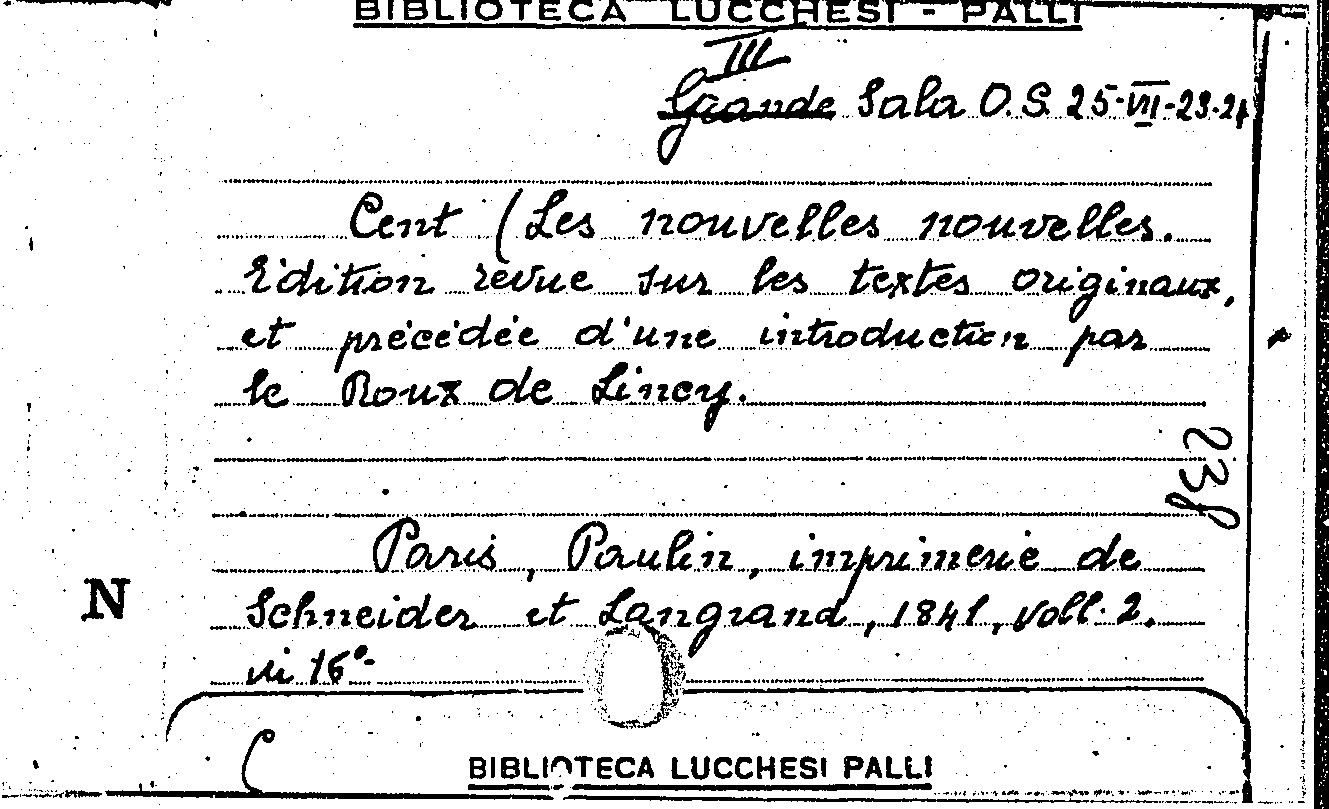 BIBLIOTECA LUCCHESI - PALLI
III
Grande Sala O.S. 25-VII-23-24
Cent (Les nouvelles nouvelles.
Édition revue sur les textes originaux,
et précédée d'une introduction par
le Roux de Lincy.
238
Paris, Paulin, imprimerie de
Schneider et Langrand, 1841, voll. 2.
in 16°-
N
C
BIBLIOTECA LUCCHESI PALLI